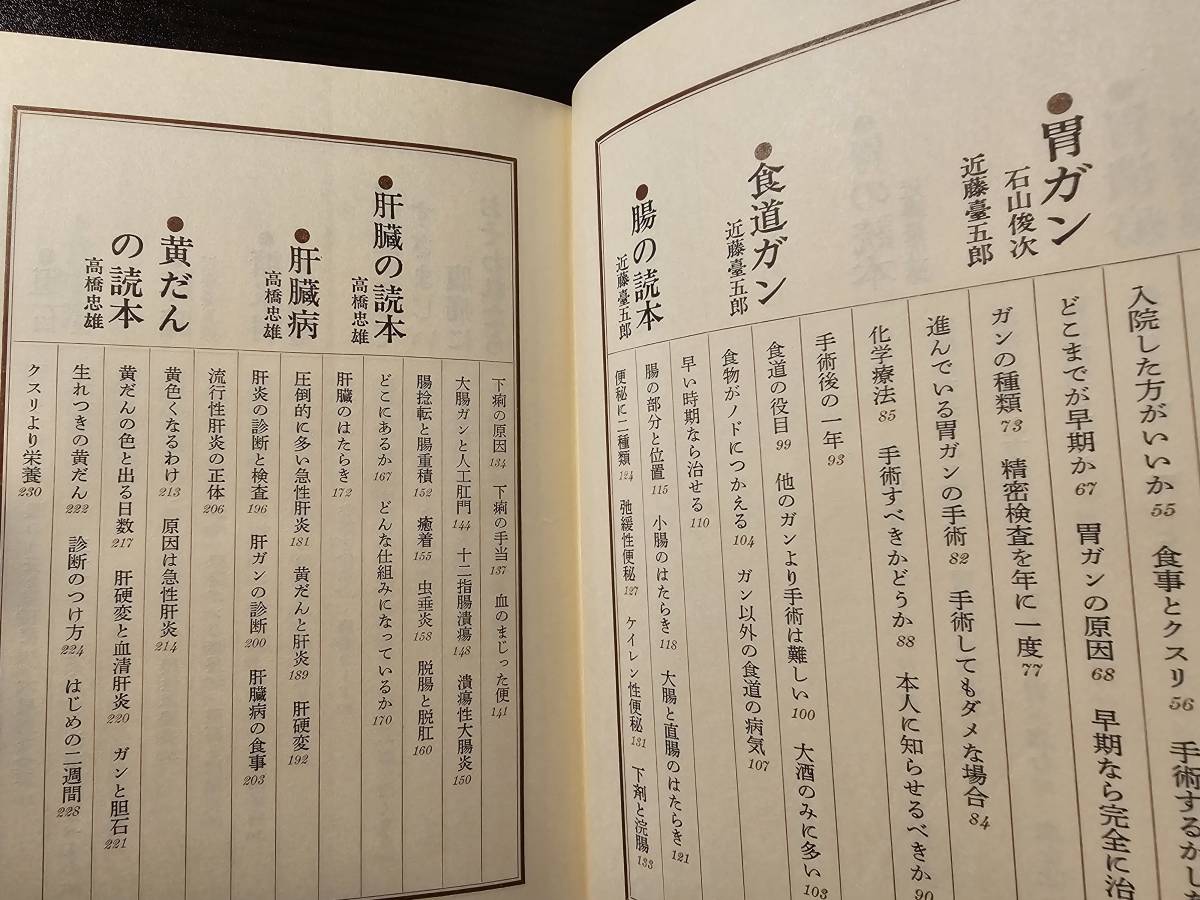 ●胃ガン
石山俊次
近藤臺五郎
入院した方がいいか 55 食事とクスリ 56 手術するかし
どこまでが早期か 67 胃ガンの原因 68 早期なら完全に治
ガンの種類 73 精密検査を年に一度 77
進んでいる胃ガンの手術 82 手術してもダメな場合 84
化学療法 85 手術すべきかどうか 88 本人に知らせるべきか 90
手術後の一年 93
●食道ガン
近藤臺五郎
食道の役目 99 他のガンより手術は難しい 100 大酒のみに多い 103
食物がノドにつかえる 104 ガン以外の食道の病気 107
早い時期なら治せる 110
●腸の読本
近藤臺五郎
腸の部分と位置 115 小腸のはたらき 118 大腸と直腸のはたらき 121
便秘に二種類 124 弛緩性便秘 127 ケイレン性便秘 131 下剤と浣腸 133
下痢の原因 134 下痢の手当 137 血のまじった便 141
大腸ガンと人工肛門 144 十二指腸潰瘍 148 潰瘍性大腸炎 150
腸捻転と腸重積 152 癒着 155 虫垂炎 158 脱腸と脱肛 160
●肝臓の読本
高橋忠雄
どこにあるか 167 どんな仕組みになっているか 170
肝臓のはたらき 172
●肝臓病
高橋忠雄
圧倒的に多い急性肝炎 181 黄だんと肝炎 189 肝硬変 192
肝炎の診断と検査 196 肝ガンの診断 200 肝臓病の食事 203
流行性肝炎の正体 206
●黄だん
の読本
高橋忠雄
黄色くなるわけ 213 原因は急性肝炎 214
黄だんの色と出る日数 217 肝硬変と血清肝炎 220 ガンと胆石 221
生れつきの黄だん 222 診断のつけ方 224 はじめの二週間 228
クスリより栄養 230